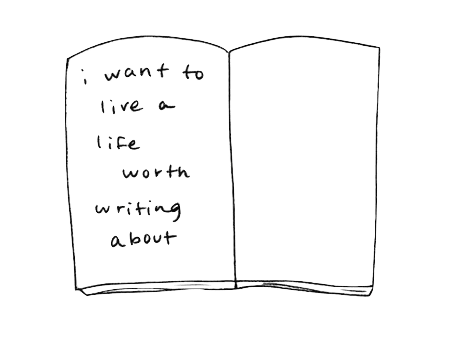 i want to
live a
life
worth
writing
about